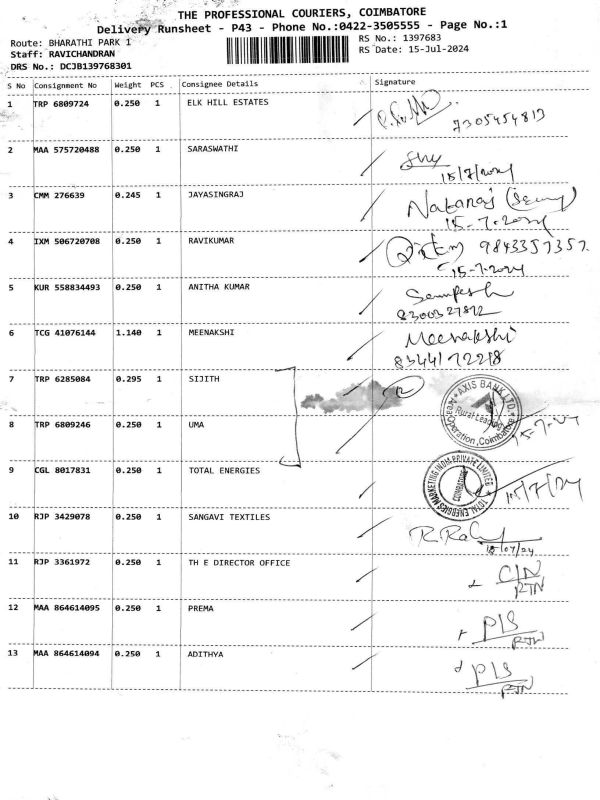 THE PROFESSIONAL COURIERS, COIMBATORE
Delivery Runsheet - P43 - Phone No.:0422-3505555 - Page No.:1
Route: BHARATHI PARK 1
RS No.: 1397683
Staff: RAVICHANDRAN
RS Date: 15-Jul-2024
DRS No.: DCJB139768301
S No Consignment No Weight PCS Consignee Details Signature
1 TRP 6809724 0.250 1 ELK HILL ESTATES
7305454813
2 MAA 575720488 0.250 1 SARASWATHI
15/7/2024
3 CMM 276639 0.245 1 JAYASINGRAJ Nataraj
15-7-2024
4 IXM 506720708 0.250 1 RAVIKUMAR 9843357357
15-7-2024
5 KUR 558834493 0.250 1 ANITHA KUMAR
8300327872
6 TCG 41076144 1.140 1 MEENAKSHI Meenakshi
8344172218
7 TRP 6285084 0.295 1 SIJITH
AXIS BANK LTD.
Rural Lending
Operation, Coimbatore
8 TRP 6809246 0.250 1 UMA 15-7-24
9 CGL 8017831 0.250 1 TOTAL ENERGIES
TOTAL ENERGIES MARKETING INDIA PRIVATE LIMITED
COIMBATORE
15/7/24
10 RJP 3429078 0.250 1 SANGAVI TEXTILES
15/07/24
11 RJP 3361972 0.250 1 TH E DIRECTOR OFFICE C/N
RTN
12 MAA 864614095 0.250 1 PREMA P/S
RTN
13 MAA 864614094 0.250 1 ADITHYA P/S
RTN